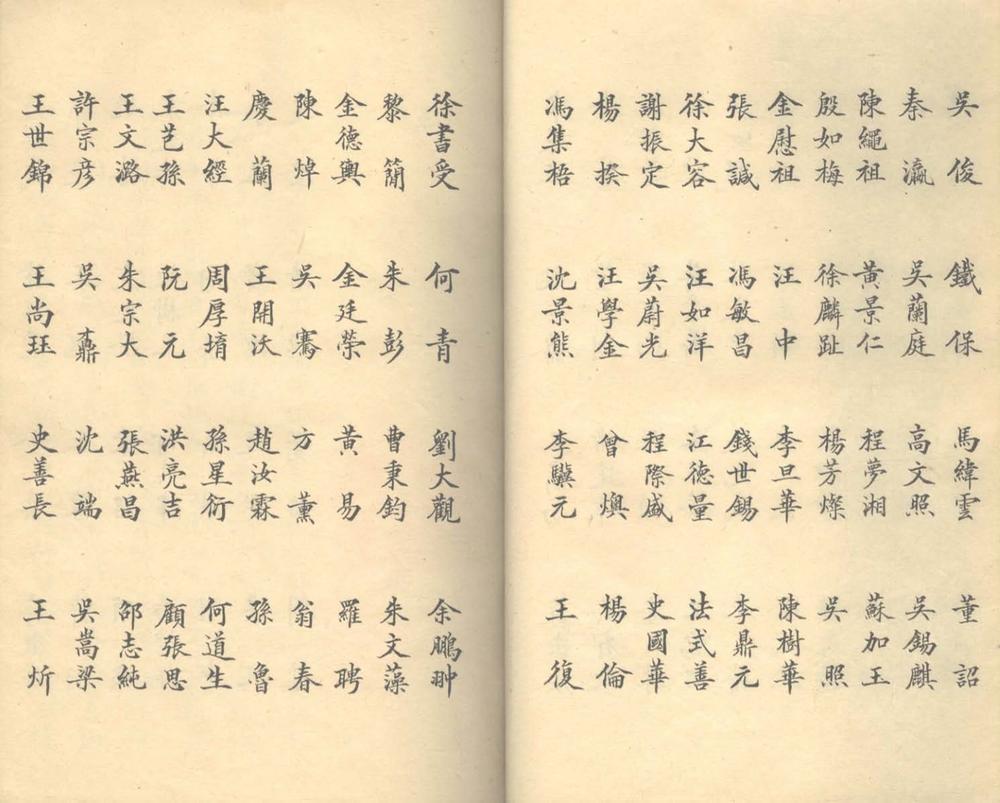 吳俊 鐵保 馬緯雲 董詔
秦瀛 吳蘭庭 高文照 吳錫麒
陳繩祖 黃景仁 程夢湘 蘇加玉
殷如梅 徐麟趾 楊芳燦 吳照
金慰祖 汪中 李旦華 陳樹華
張誠 馮敏昌 錢世錫 李鼎元
徐大容 汪如洋 江德量 法式善
謝振定 吳蔚光 程際盛 史國華
楊揆 汪學金 曾燠 楊倫
馮集梧 沈景熊 李驥元 王復
徐書受 何青 劉大觀 余鵬翀
黎簡 朱彭 曹秉鈞 朱文藻
金德輿 金廷榮 黃易 羅聘
陳焯 吳騫 方薰 翁春
慶蘭 王開沃 趙汝霖 孫魯
汪大經 周厚堉 孫星衍 何道生
王芑孫 阮元 洪亮吉 顧張思
王文潞 朱宗大 張燕昌 邵志純
許宗彦 吳鼒 沈端 吳嵩梁
王世錦 王尚珏 史善長 王炘